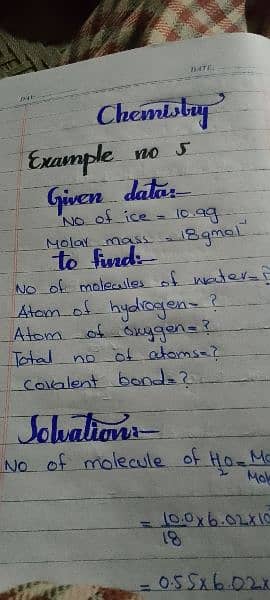 DATE.
Chemistry
Example no 5
Given data:-
No of ice = 10.0g
Molar mass = 18gmol⁻
to find:-
No of molecules of water=?
Atom of hydrogen=?
Atom of oxygen=?
Total no of atoms=?
Covalent bond=?
Solvation:-
No of molecule of H₂O=
= 10.0x6.02x10
18
= 0.55x6.02x